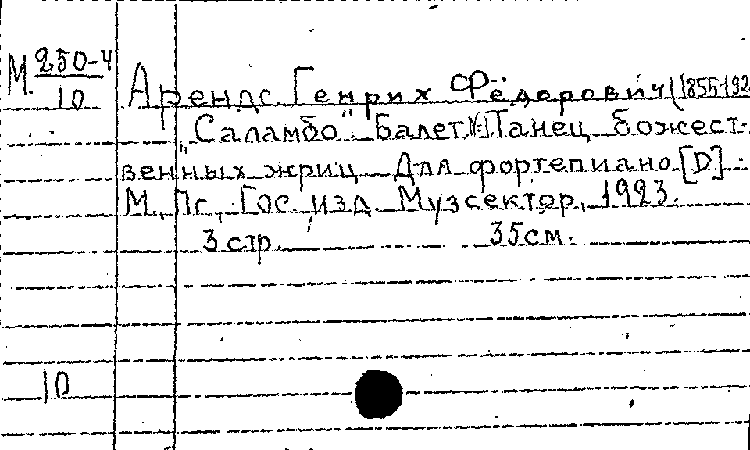 М. 250-4
10
Арендс Генрих Фёдорович (1855-192
„Саламбо". Балет. Танец божест-
венных жриц Для фортепиано. [D]
М., Пг., Гос. изд. Музсектор, 1923.
3 стр. 35см.
10